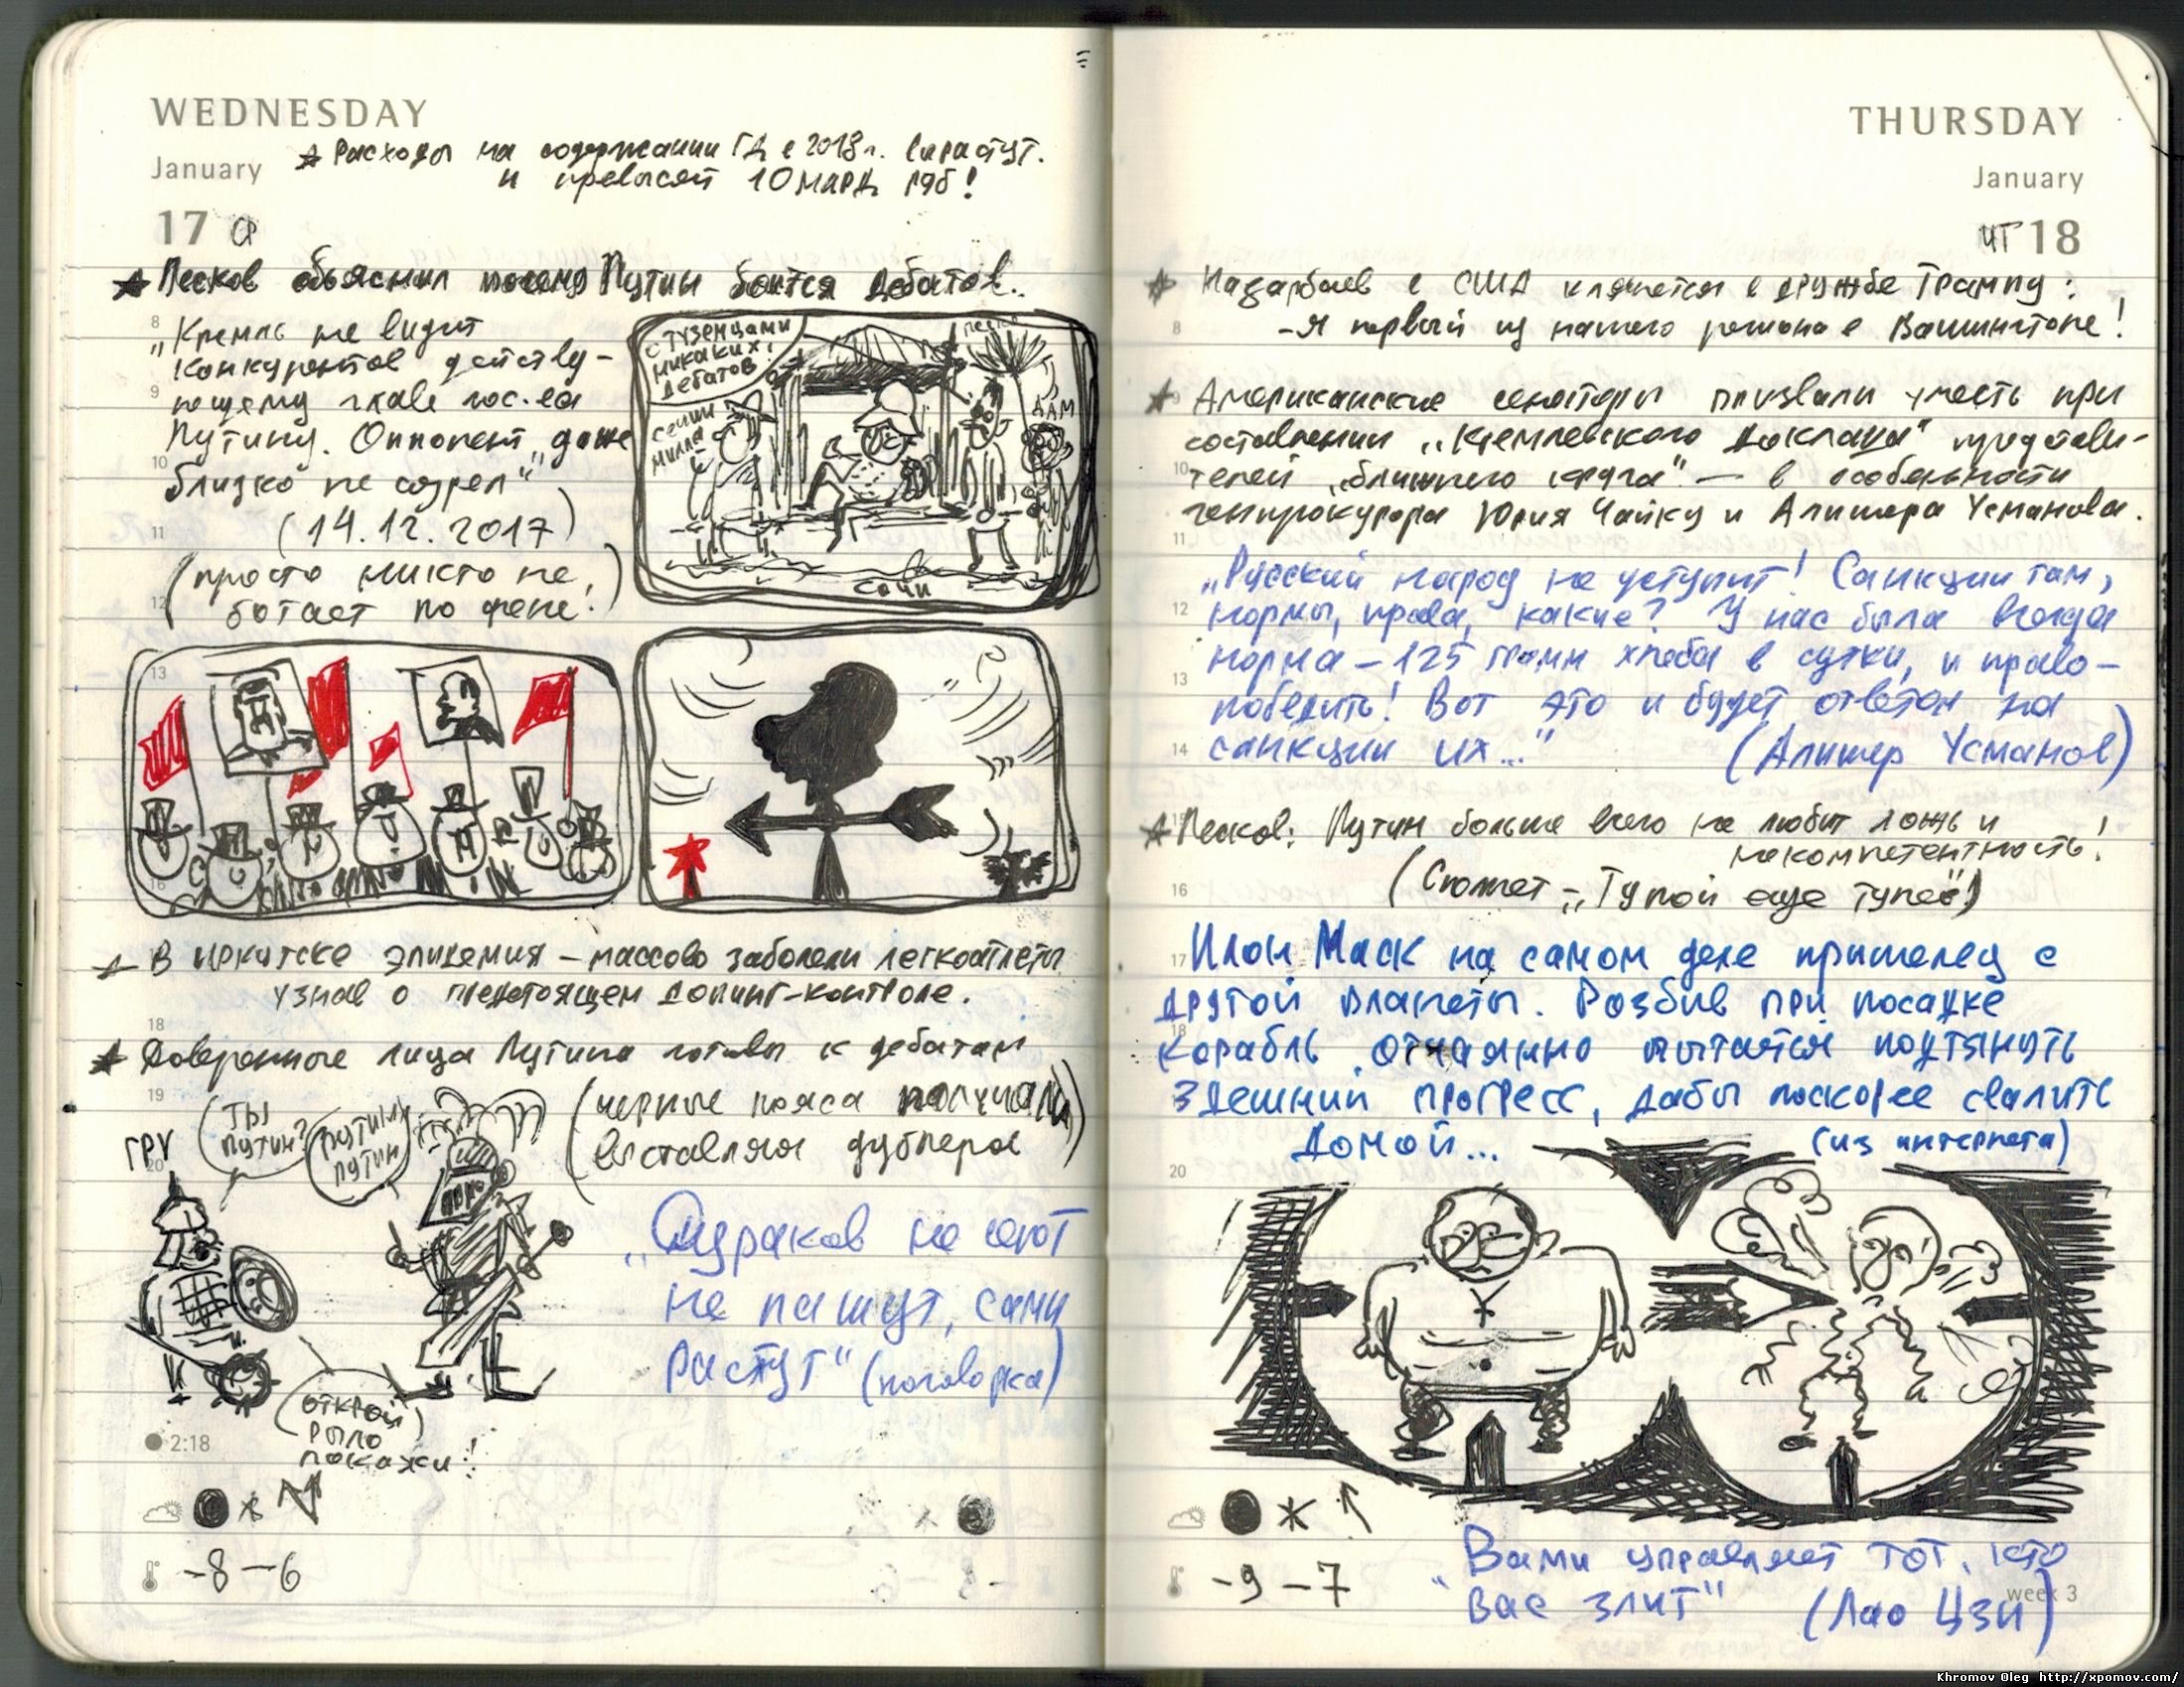 WEDNESDAY
January
17 ср
★ Расходы на содержании ГД с 2018 г. вырастут.
и превысят 10 млрд руб!
★ Песков объяснил почему Путин боится дебатов.
„Кремль не видит
конкурентов действу-
ющему главе гос-ва
Путину. Оппонент „даже
близко не созрел"
(14.12.2017)
(просто никто не
ботает по фене!)
С ТУЗЕМЦАМИ
НИКАКИХ
ДЕБАТОВ!
ДАМ
СОЧИ
★ В Иркутске эпидемия – массово заболели легкоатлеты
узнав о предстоящем допинг-контроле.
★ Доверенные лица Путина готовы к дебатам
(черные пояса получали
выставляя дублера)
ГРУ
ТЫ
ПУТИН?
ПУТИН
ОТКРОЙ
РЫЛО
ПОКАЖИ!
„Дураков не сеют
не пашут, сами
растут" (поговорка)
2:18
-8 -6
THURSDAY
January
ЧТ 18
★ Назарбаев в США клянется в дружбе Трампу:
-Я первый из нашего региона в Вашингтоне!
★ Американские сенаторы призвали учесть при
составлении „Кремлевского доклада" представи-
телей „ближнего круга" — в особенности
генпрокурора Юрия Чайку и Алишера Усманова.
„Русский народ не уступит! Санкции там,
нормы, права, какие? У нас была всегда
норма – 125 грамм хлеба в сутки, и право-
победить! Вот это и будет ответом на
санкции их..." (Алишер Усманов)
★ Песков: Путин больше всего не любит ложь и
некомпетентность!
(Сюжет – „Тупой еще тупее"!)
Илон Маск на самом деле пришелец с
другой планеты. Розбив при посадке
корабль отчаянно пытается подтянуть
здешний прогресс, дабы поскорее свалить
домой... (из интернета)
-9 -7
„Вами управляет тот, кто
вас злит" (Лао Цзи)
week 3
Khromov Oleg http://xpomov.com/